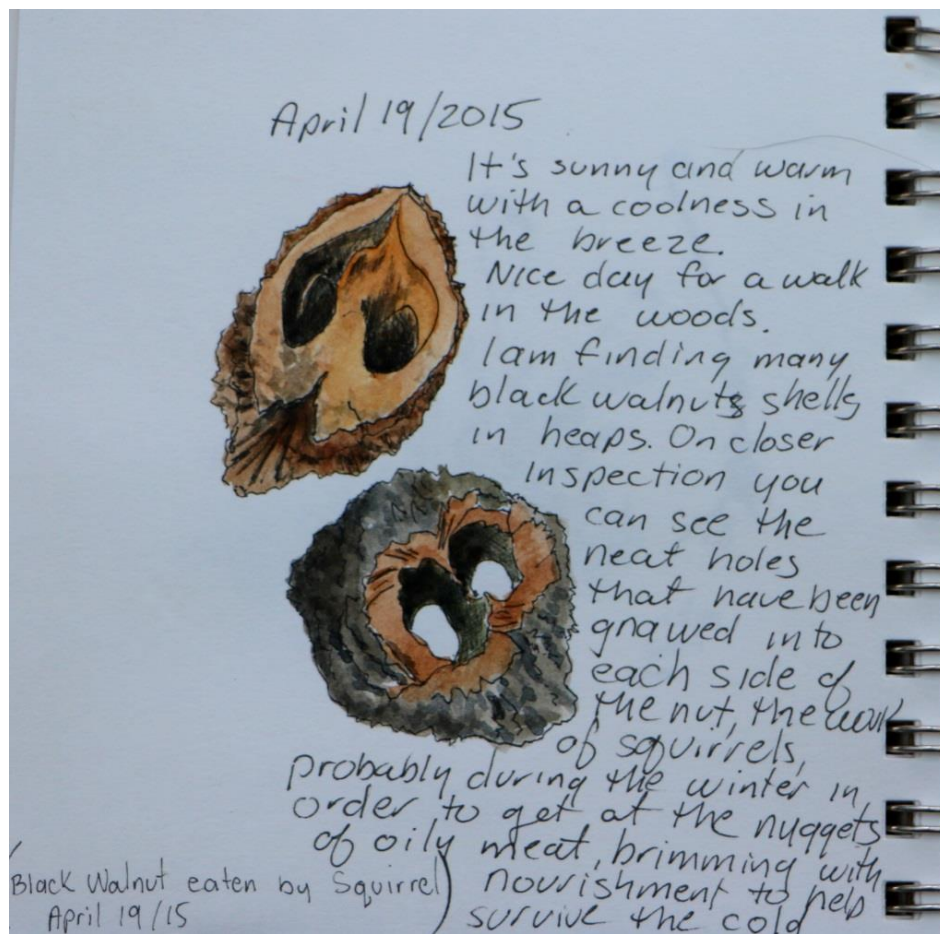 April 19/2015
It's sunny and warm
with a coolness in
the breeze.
Nice day for a walk
in the woods.
I am finding many
black walnuts shells
in heaps. On closer
inspection you
can see the
neat holes
that have been
gnawed into
each side of
the nut, the work
of squirrels,
probably during the winter in
order to get at the nuggets
of oily meat, brimming with
nourishment to help
survive the cold
Black Walnut eaten by Squirrel)
April 19/15